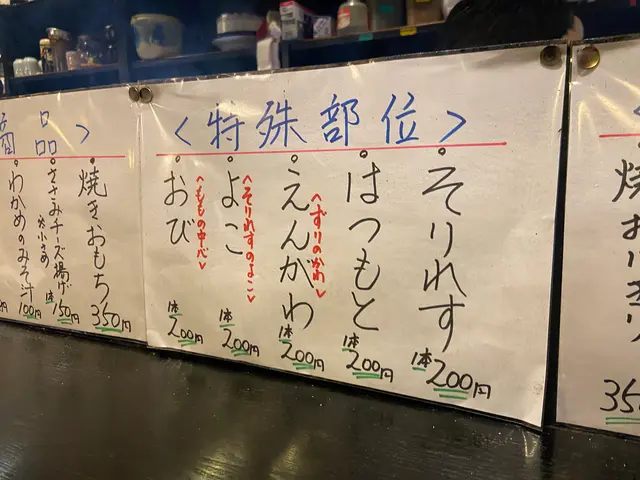 <特殊部位>
そりれす
1本200円
はつもと
1本200円
えんがわ
<ずりのかわ>
1本200円
よこ
<そりれすのよこ>
1本200円
おび
<ももの中心>
1本200円
品>
焼きおもち
350円
ささみチーズ揚げ
1本150円
わかめのみそ汁
100円
焼おにぎり
35